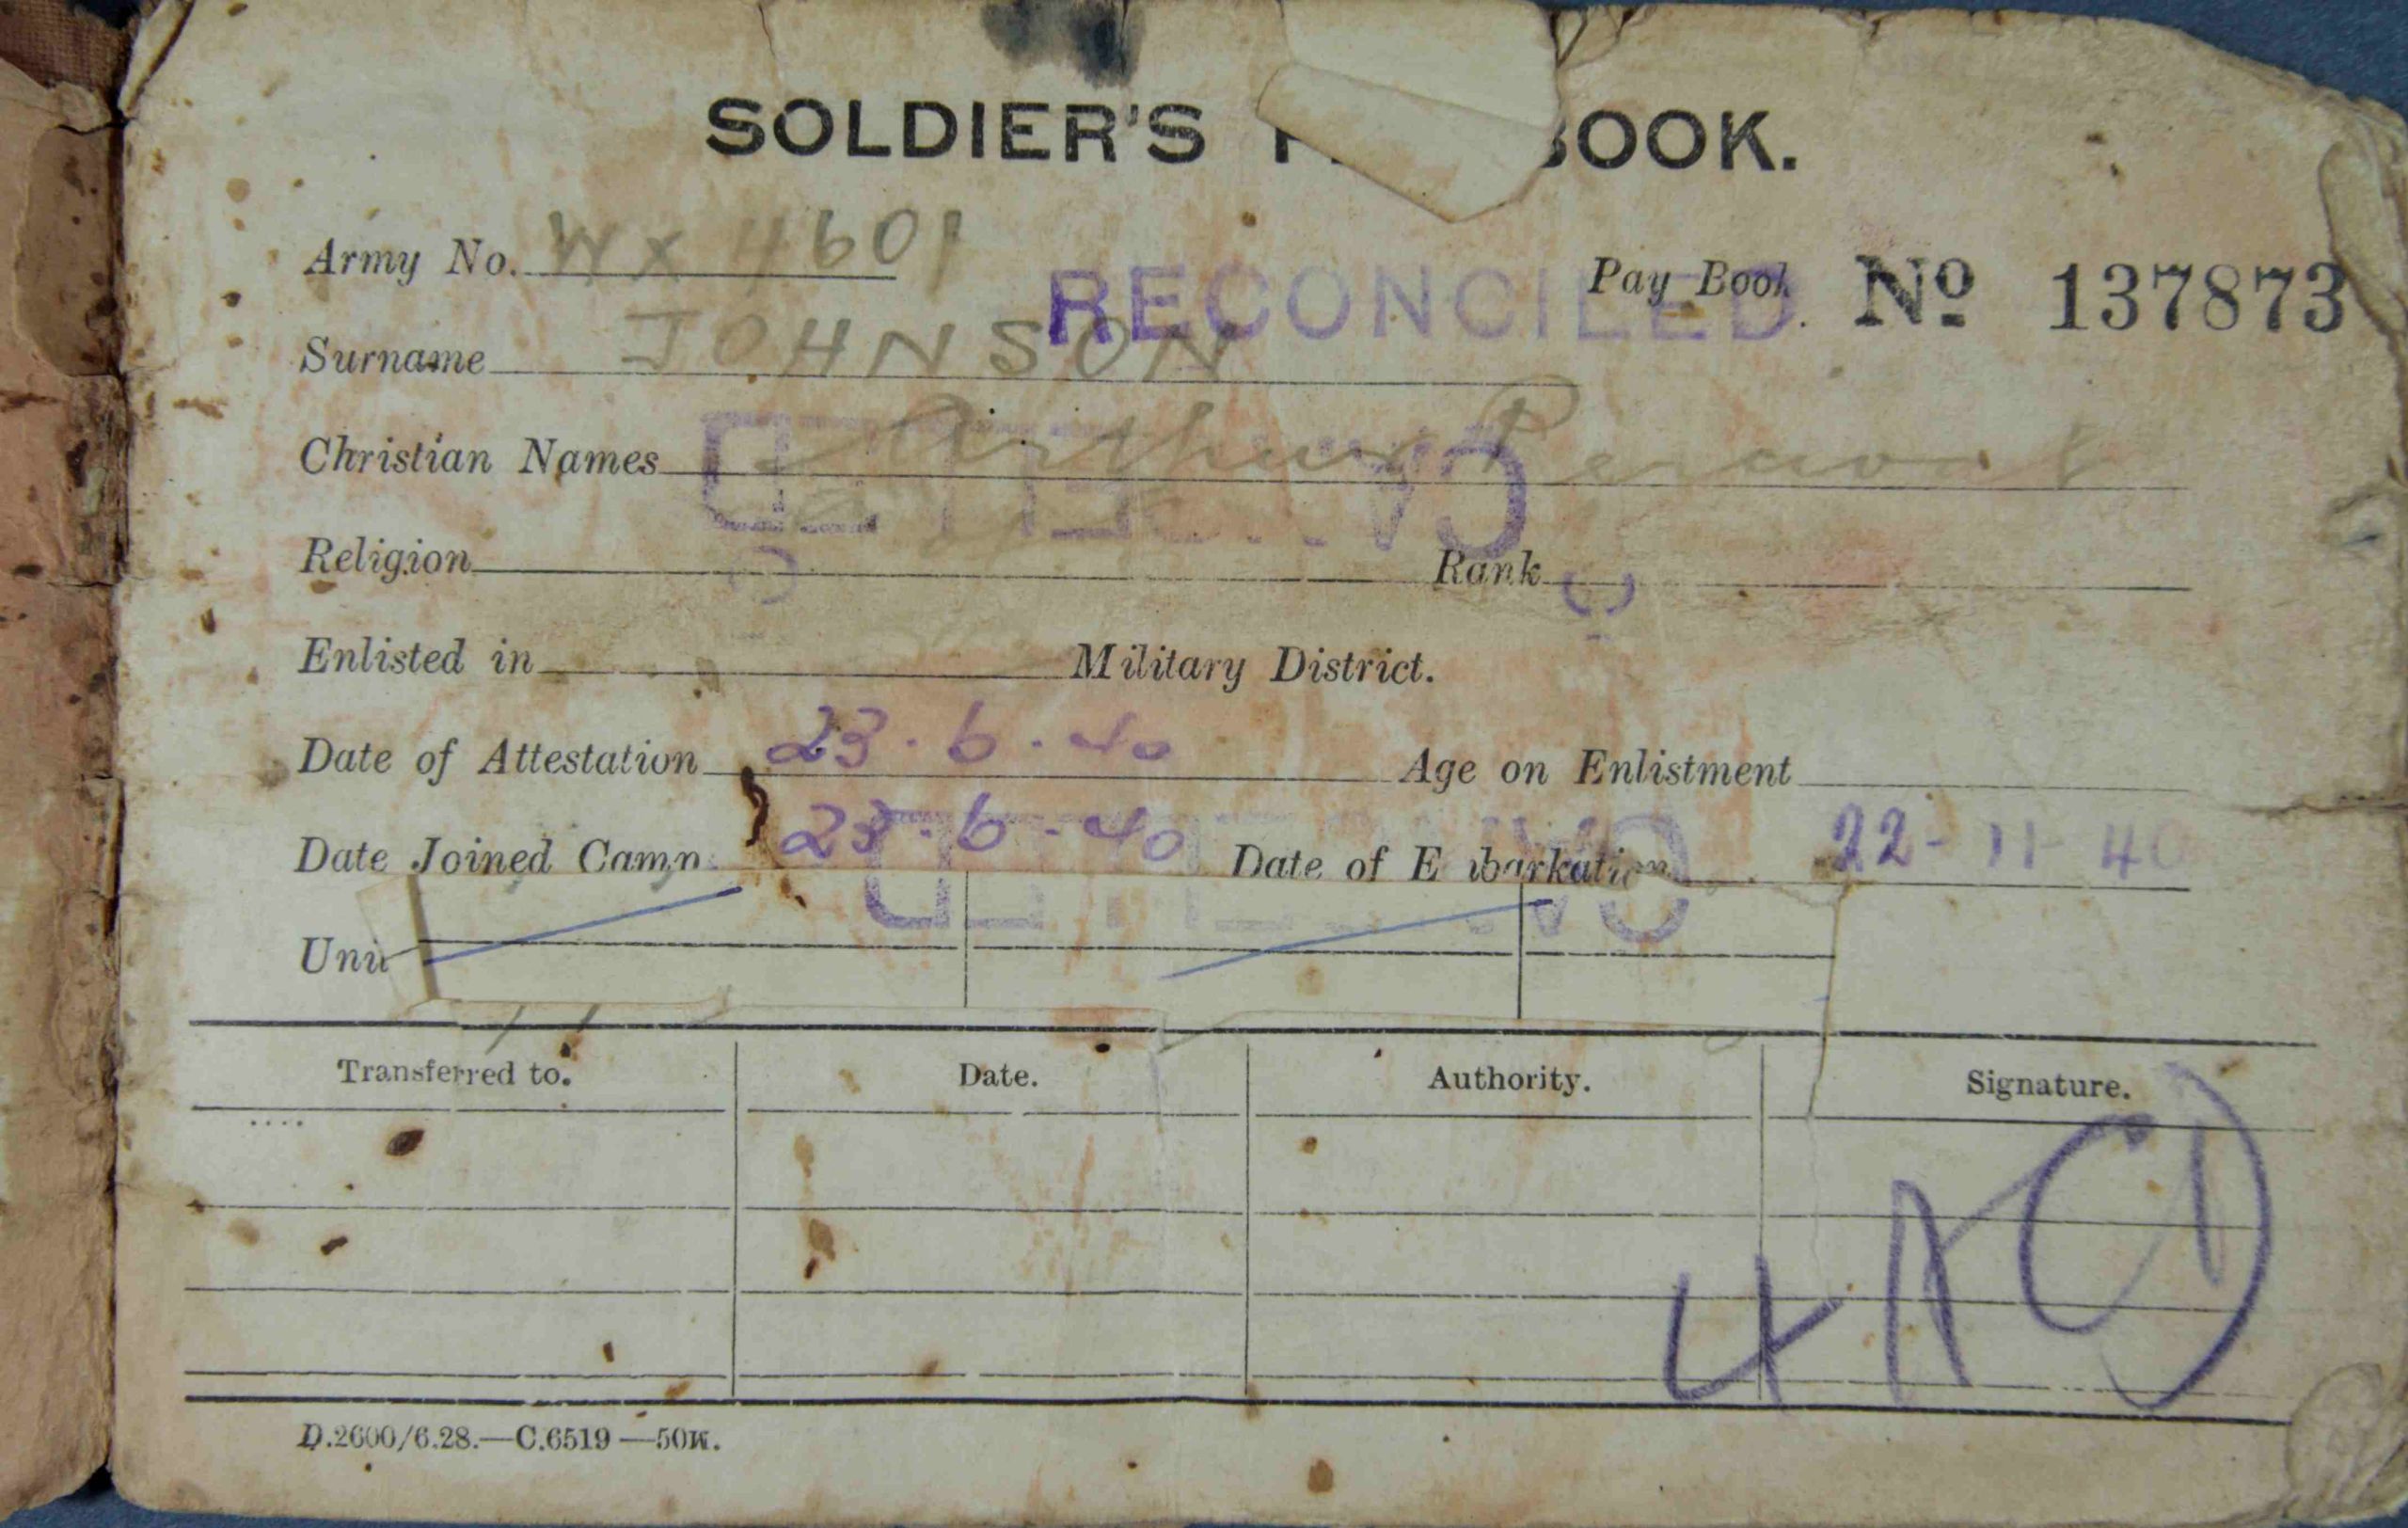 SOLDIER'S BOOK.
Army No. WX 4601
RECONCILED
Pay Book No 137873
Surname JOHNSON
Christian Names Arthur Percival
CANCELLED
Religion Rank
Enlisted in Military District.
Date of Attestation 23.6.40 Age on Enlistment
Date Joined Camp 23.6.40 Date of Embarkation 22-11-40
CANCELLED
Unit
Transferred to. Date. Authority. Signature.
D.2600/6.28.—C.6519—50M.